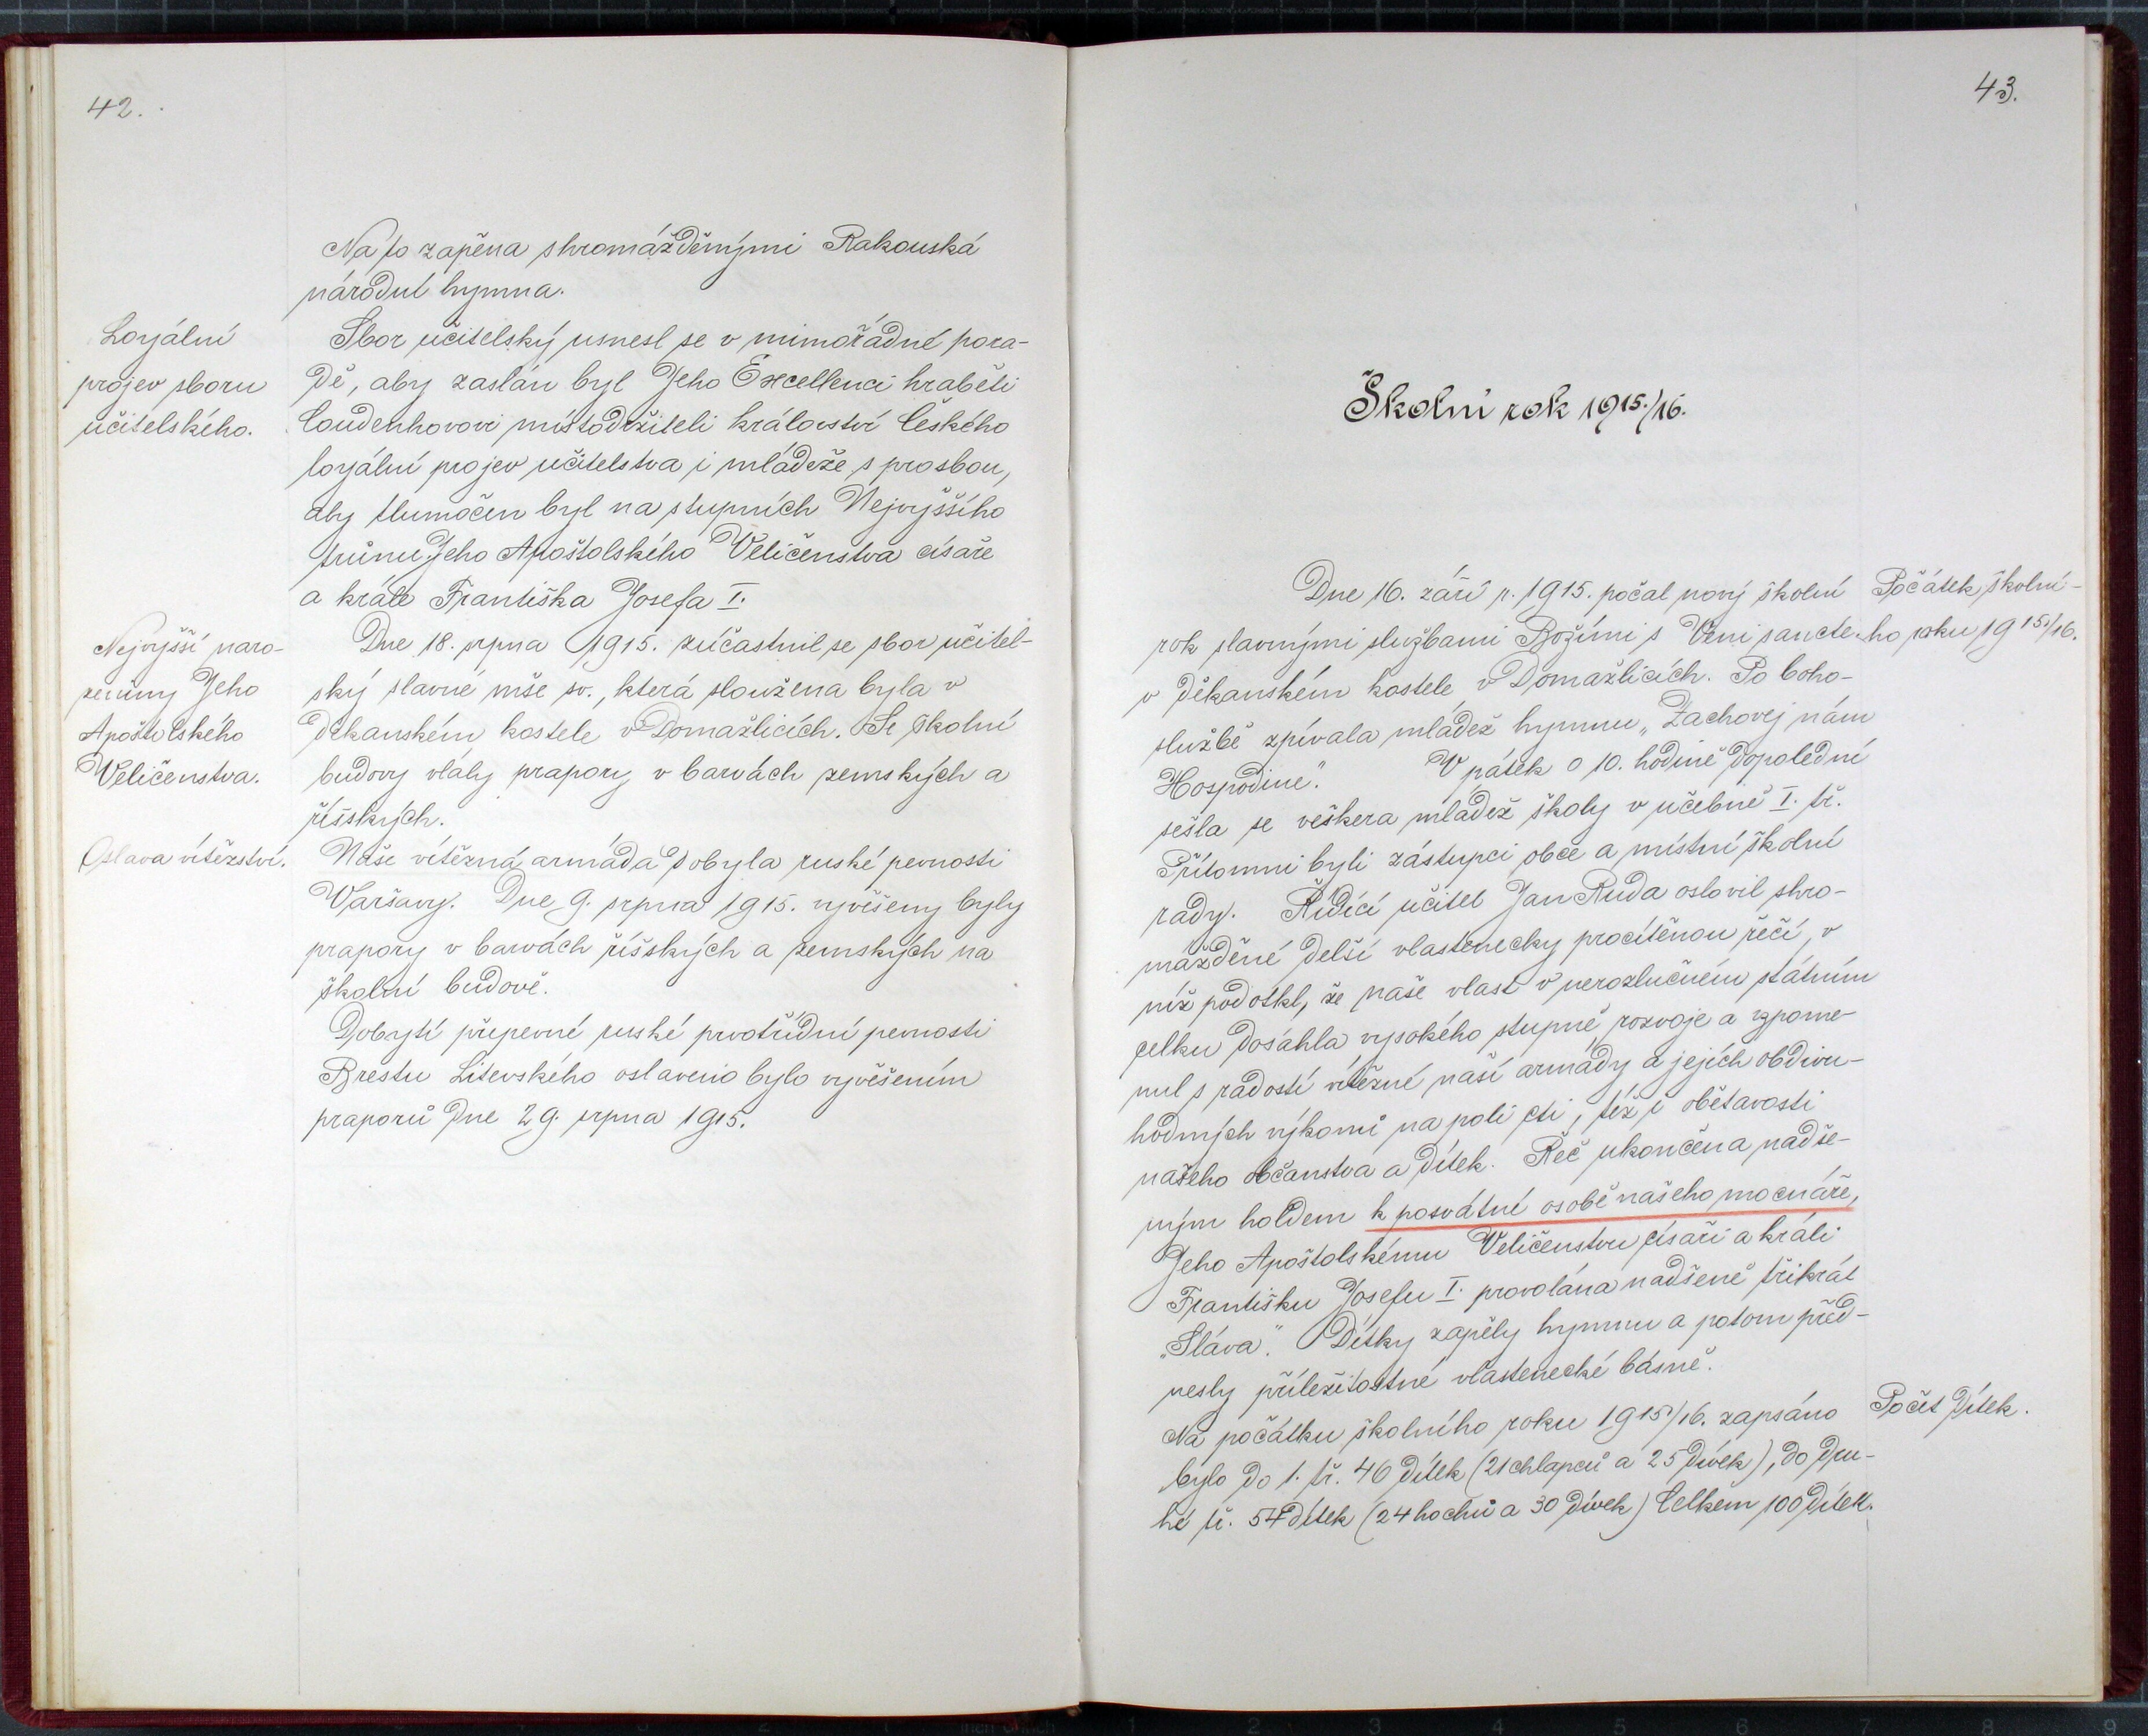 42.
Na to zapěna shromážděnými Rakouská
národní hymna.
Loyální
projev sboru
učitelského.
Sbor učitelský usnesl se v mimořádné pora-
dě, aby zaslán byl Jeho Excellenci hraběti
Coudenhovovi místodržiteli království Českého
loyální projev učitelstva i mládeže s prosbou,
aby tlumočen byl na stupních Nejvyššího
trůnu Jeho Apoštolského Veličenstva císaře
a krále Františka Josefa I.
Nejvyšší naro-
zeniny Jeho
Apoštolského
Veličenstva.
Dne 18. srpna 1915. zúčastnil se sbor učitel-
ský slavné mše sv., která sloužena byla v
děkanském kostele v Domažlicích. Se školní
budovy vlály prapory v barvách zemských a
říšských.
Oslava vítězství.
Naše vítězná armáda dobyla ruské pevnosti
Waršavy. Dne 9. srpna 1915. vyvěšeny byly
prapory v barvách říšských a zemských na
školní budově.
Dobytí přepevné ruské prvotřídní pevnosti
Brestu Litevského oslaveno bylo vyvěšením
praporů dne 29. srpna 1915.
43.
Školní rok 1915./16.
Počátek školní-
ho roku 1915./16.
Dne 16. září r. 1915. počal nový školní
rok slavnými službami Božími s Veni sancte
v děkanském kostele v Domažlicích. Po boho-
službě zpívala mládež hymnu „Zachovej nám
Hospodine". V pátek o 10. hodině dopolední
sešla se veškera mládež školy v učebně I. tř.
Přítomni byli zástupci obce a místní školní
rady. Řídící učitel Jan Ruda oslovil shro-
mážděné delší vlastenecky procítěnou řečí, v
níž podotkl, že naše vlast v nerozlučném státním
celku dosáhla vysokého stupně rozvoje a vzpome-
nul s radostí vítězné naší armády a jejích obdivu-
hodných výkonů na poli cti, též i obětavosti
našeho občanstva a dítek. Řeč ukončena nadše-
ným holdem k posvátné osobě našeho mocnáře,
Jeho Apoštolskému Veličenstvu císaři a králi
Františku Josefu I. provolána nadšeně třikrát
„Sláva". Dítky zapěly hymnu a potom před-
nesly příležitostné vlastenecké básně.
Počet dítek.
Na počátku školního roku 1915/16. zapsáno
bylo do 1. tř. 46 dítek (21 chlapců a 25 dívek), do dru-
hé tř. 54 dítek (24 hochů a 30 dívek) Celkem 100 dítek.